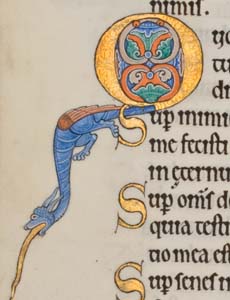 nimis.
Quo
tu
di
Sup inimic
me fecisti
in eternu
Sup oms do
quia testi
tio mea est
Sup senes in